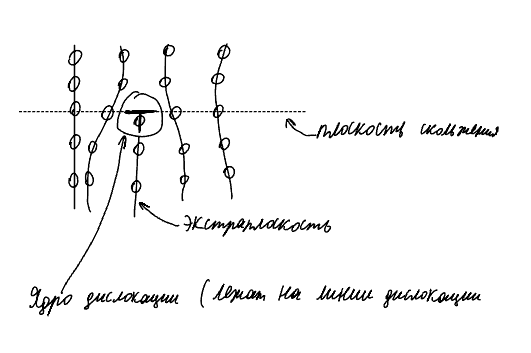 плоскость скольжения
экстраплоскость
Ядро дислокации (лежат на линии дислокации